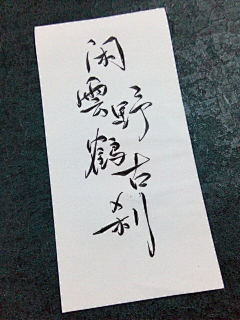 闲雲野鶴古刹